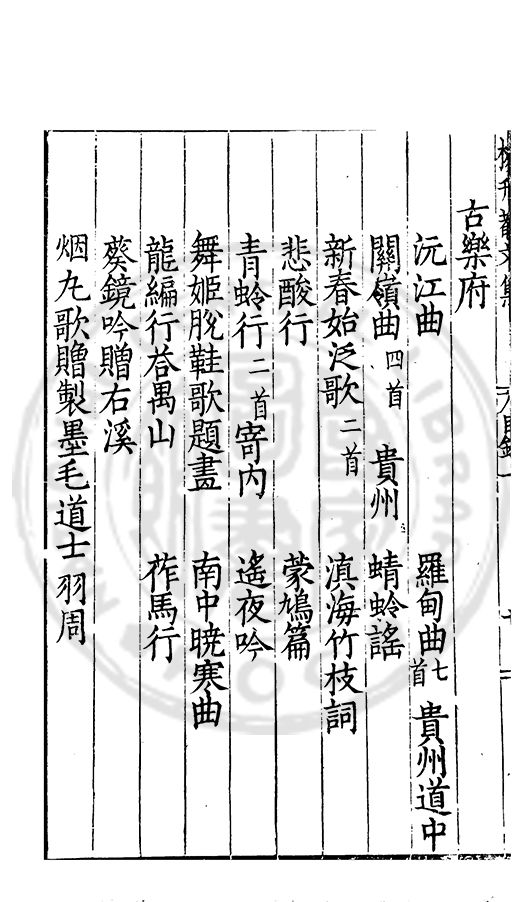 古樂府
沅江曲 羅甸曲七首 貴州道中
關嶺曲四首 貴州 蜻蛉謠
新春始泛歌二首 滇海竹枝詞
悲酸行 蒙鳩篇
青蛉行二首寄内 遙夜吟
舞姬脫鞋歌題畫 南中曉寒曲
龍編行荅禺山 祚馬行
葵鏡吟贈右溪
烟丸歌贈製墨毛道士羽周